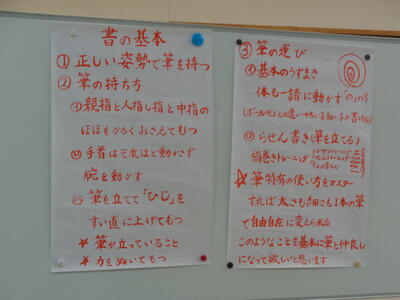 書の基本
① 正しい姿勢で筆を持つ
② 筆の持ち方
㋑ 親指と人指し指と中指の
ほほをかるくおさえてもつ
㋺ 手首はそれほど動かさず
腕を動かす
㋩ 筆を立てて「ひじ」を
すい直に上げてもつ
☆ 筆が立っていること
☆ 力をぬいてもつ
③ 筆の運び
㋑ 基本のうずまき
体も一諸に動かす「の」の字
(ボールペンとの違い→太い字細い字が書ける)
㋺ らせん書き(筆を立てる)
渦巻きトレーニング
☆ 筆特有の使い方をマスター
すれば太さも細さも1本の筆
で自由自在に変えられる
このようなことを基本に筆と仲良し
になって欲しいと思います